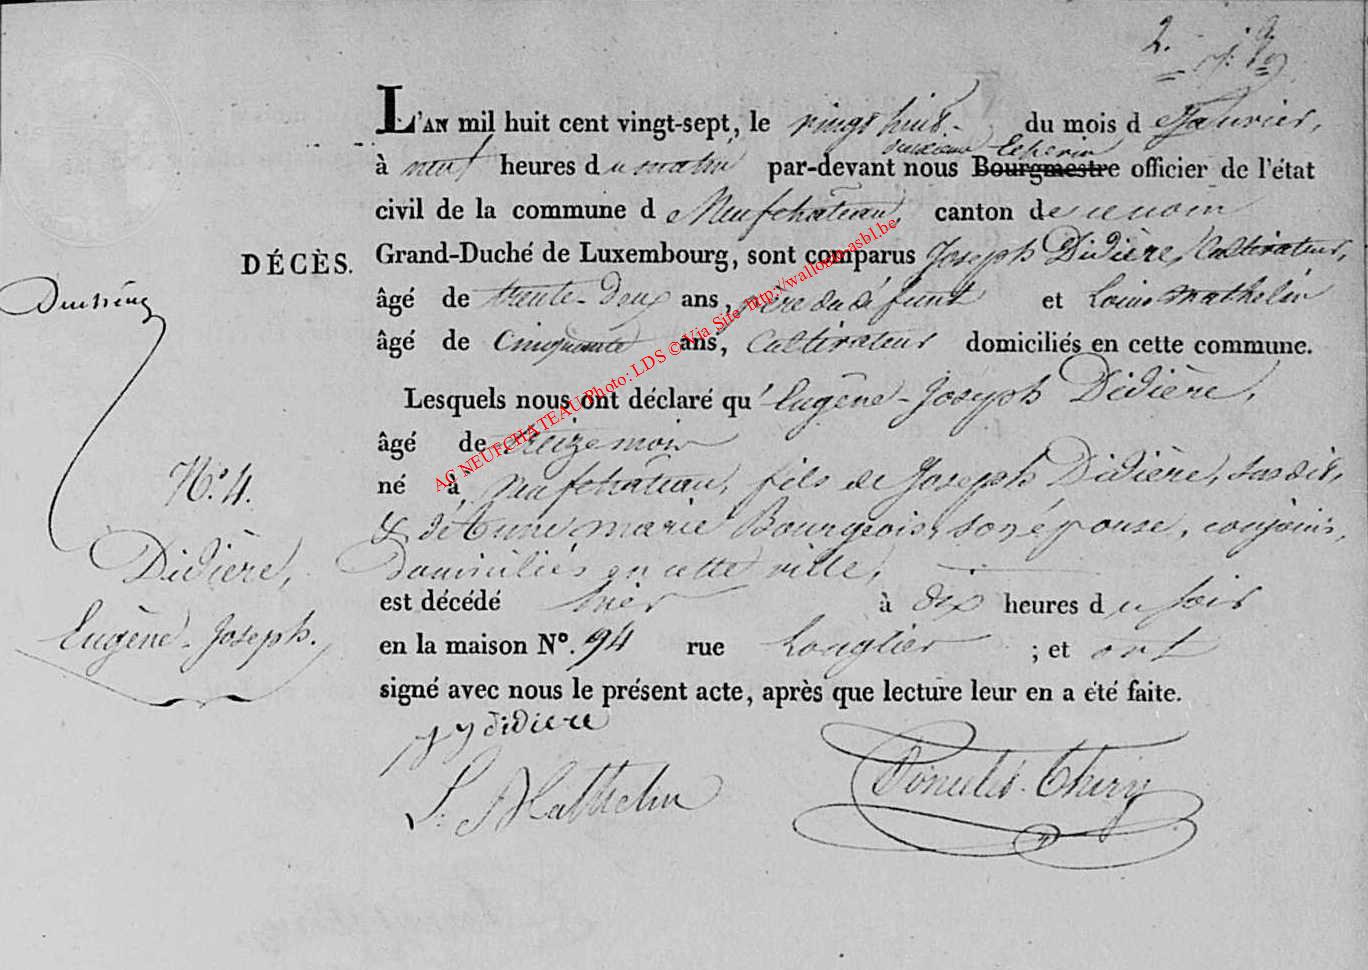 2.
L'AN mil huit cent vingt-sept, le vingt huit du mois de Janvier,
à neuf heures du matin par-devant nous Bourgmestre échevin officier de l'état
civil de la commune de Neufchateau, canton de ce nom
DÉCÈS.
Grand-Duché de Luxembourg, sont comparus Joseph Didière, Cultivateur,
âgé de trente-deux ans, père du défunt et Louis Mathelin
âgé de Cinquante ans, Cultivateur domiciliés en cette commune.
Lesquels nous ont déclaré qu'Eugène-Joseph Didière,
âgé de treize mois
né à Neufchateau, fils de Joseph Didière, susdit,
& de Anne marie Bourgeois, son épouse, conjoints,
Domiciliés en cette ville,
est décédé hier à dix heures du soir
en la maison N°. 94 rue Longlier ; et ont
signé avec nous le présent acte, après que lecture leur en a été faite.
N°. 4.
Didière,
Eugène-Joseph.
didiere
L. Mathelin
Thiry
AC NEUFCHATEAU Photo: LDS © Via Site http://wallonia-asbl.be